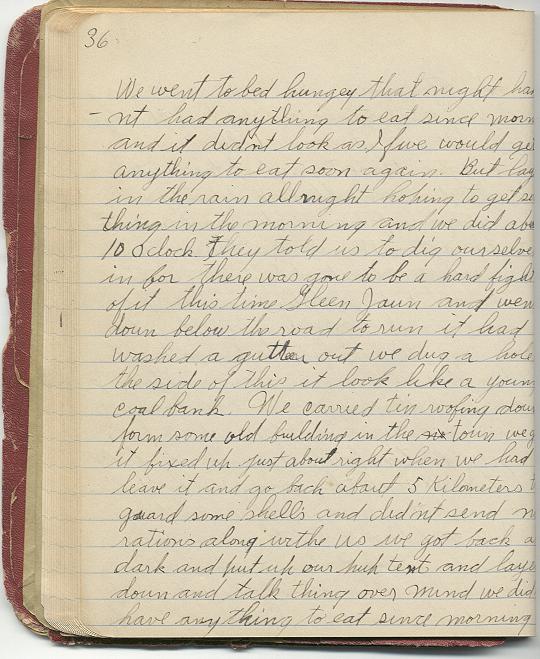 36
We went to bed hungey that night ha
- nt had anything to eat since morn
and it didnt look as if we would ge
anything to eat soon again. But lay
in the rain all night hoping to get s
thing in the morning and we did abo
10 Oclock They told us to dig ourselve
in for there was gone to be a hard figh
of it this time Gleen Jaun and wen
doun below the road to run it had
washed a gutter out we dug a hole
the side of this it look like a youn
coal bank. We carried tin roofing doun
form some old building in the toun we g
it fixed up just about right when we had
leave it and go back about 5 Kilometers t
guard some shells and didn't send n
rations along withe us we got back a
dark and put up our pup tent and laye
doun and talk thing over mind we did
have anything to eat since morning